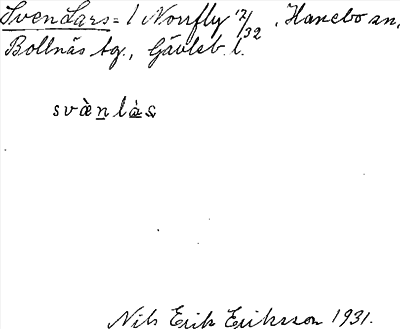 Sven Lars = 1 Nonfly 12/32, Hanebo sn,
Bollnäs tg., Gävleb. l.
svà̤n là̤s
Nils Erik Eriksson 1931.